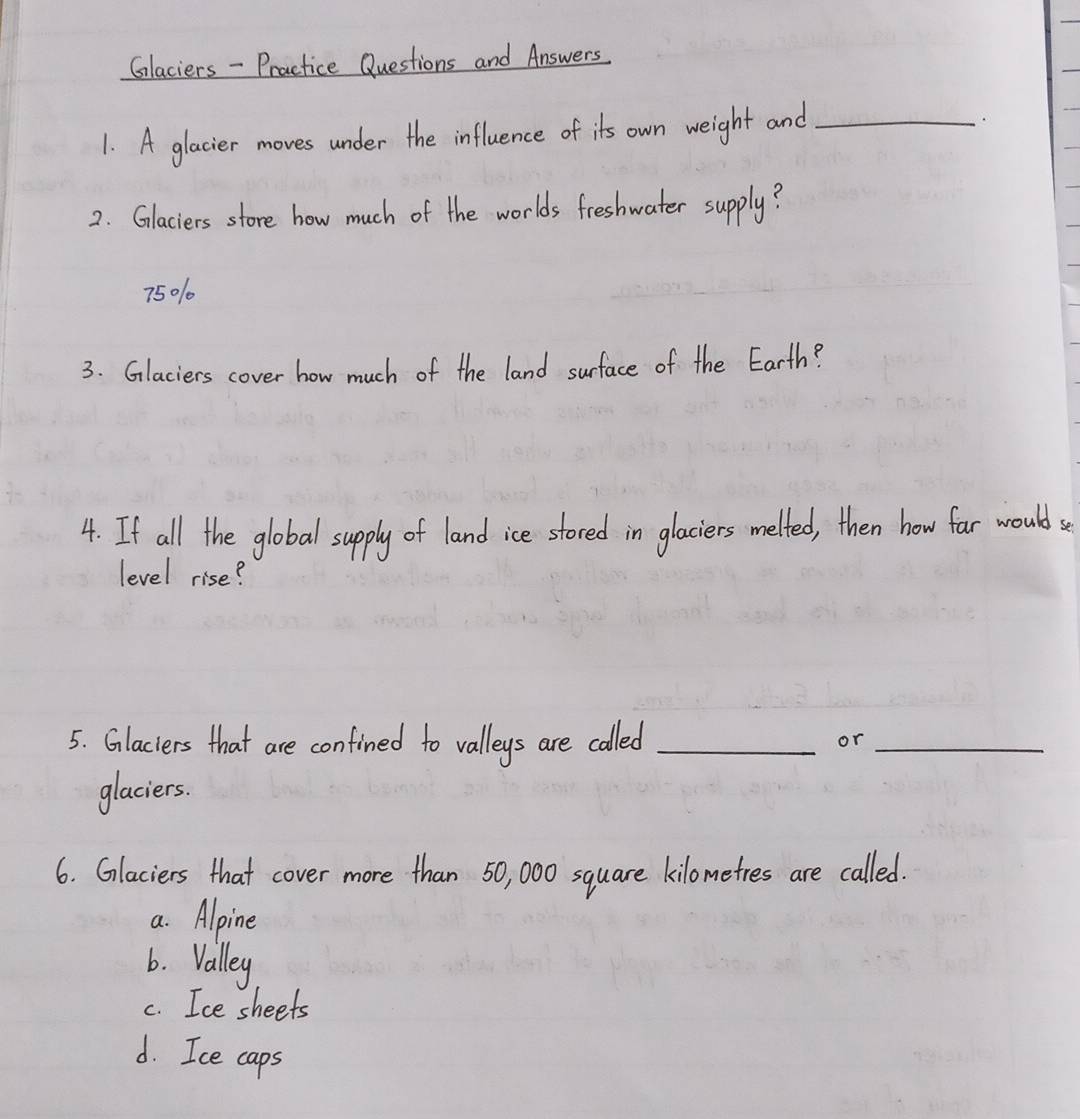 Glaciers - Practice Questions and Answers
1. A glacier moves under the influence of its own weight and __________.
2. Glaciers store how much of the worlds freshwater supply?
75%
3. Glaciers cover how much of the land surface of the Earth?
4. If all the global supply of land ice stored in glaciers melted, then how far would se
level rise?
5. Glaciers that are confined to valleys are called __________ or __________
glaciers.
6. Glaciers that cover more than 50,000 square kilometres are called.
a. Alpine
b. Valley
c. Ice sheets
d. Ice caps